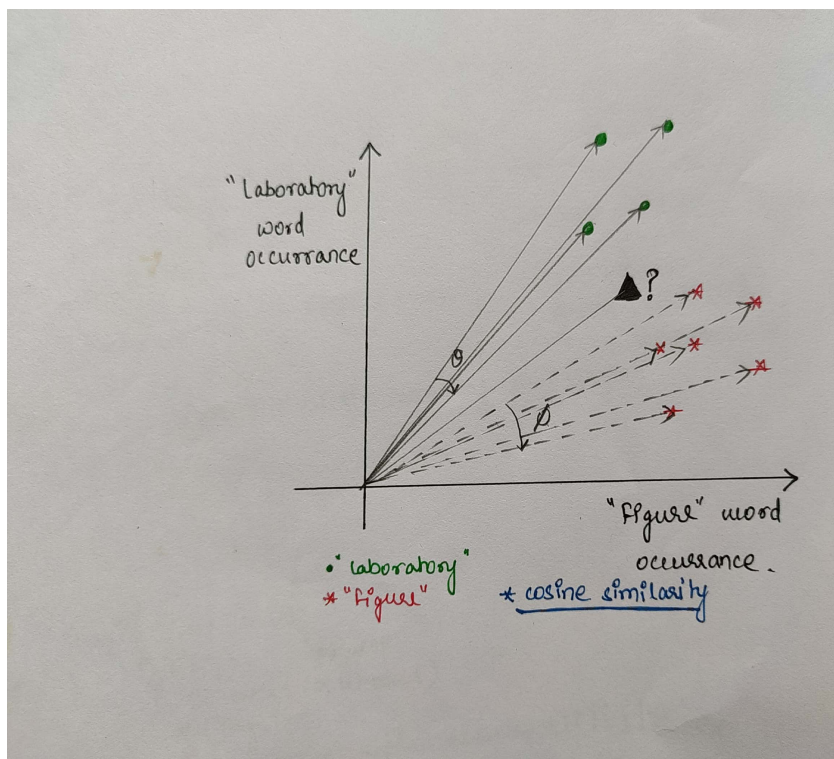 "Laboratory"
word
occurrance
θ
?
ø
"Figure" word
occurrance.
• "Laboratory"
* "Figure"
* cosine similarity